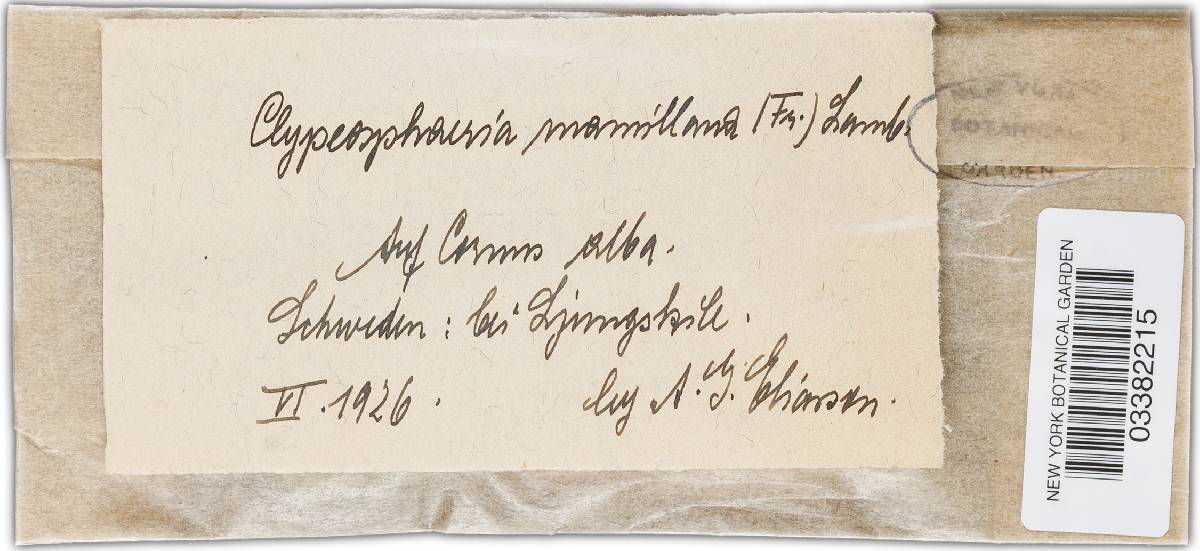 Clypeosphaeria mamillana (Fr.) Lamb.
NEW YORK
BOTANICAL
GARDEN
Auf Cornus alba.
Schweden: bei Ljungskile.
VI. 1926. leg A. G. Eliasson.
NEW YORK BOTANICAL GARDEN
03382215